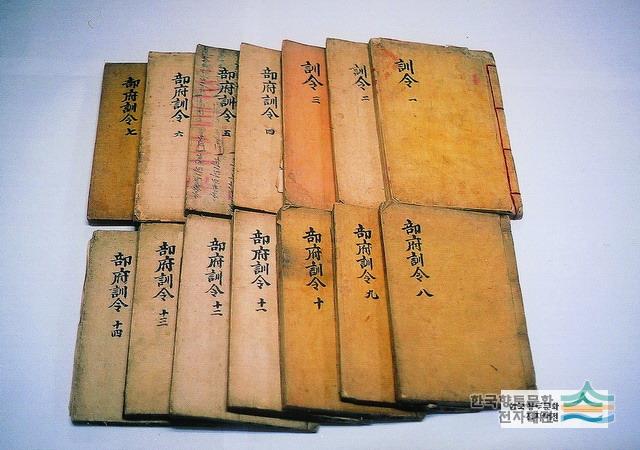 訓令 一
訓令 二
訓令 三
部府訓令 四
部府訓令 五
部府訓令 六
部府訓令 七
部府訓令 八
部府訓令 九
部府訓令 十
部府訓令 十一
部府訓令 十二
部府訓令 十三
部府訓令 十四
한국향토문화
전자대전
한국향토문화
전자대전